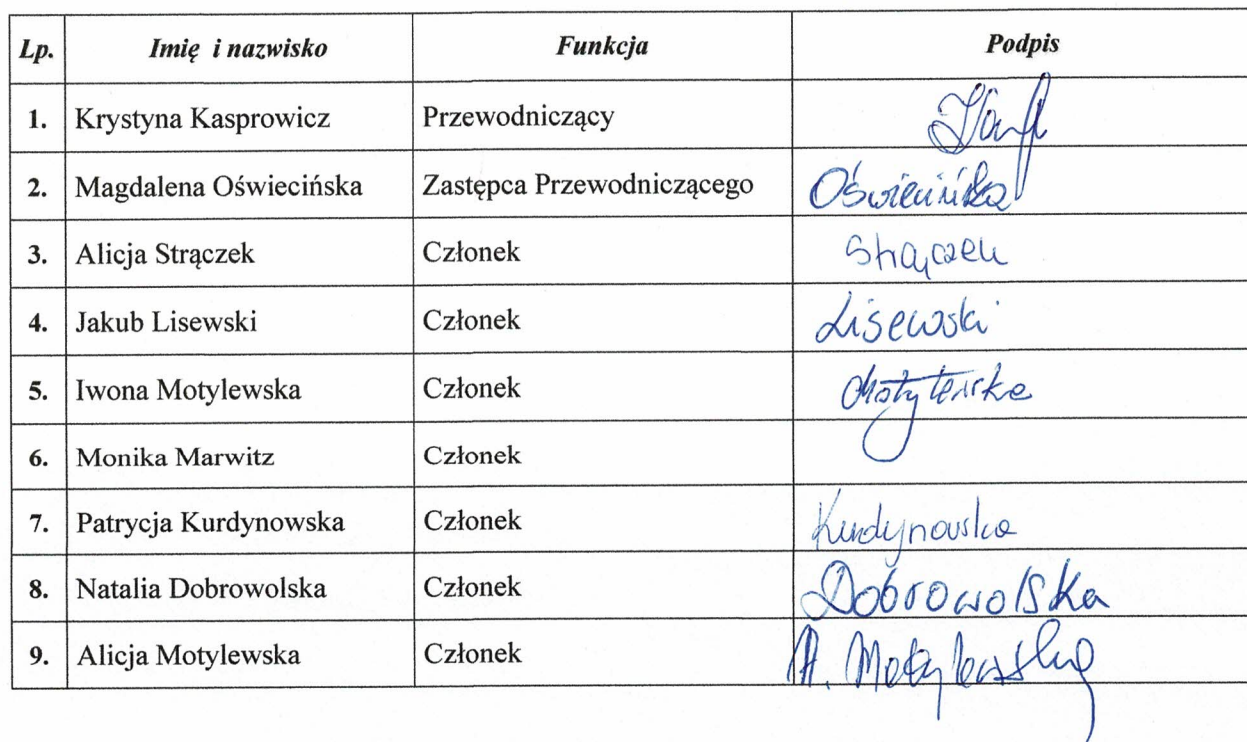 Lp. Imię i nazwisko Funkcja Podpis
1. Krystyna Kasprowicz Przewodniczący
2. Magdalena Oświecińska Zastępca Przewodniczącego Oświecińska
3. Alicja Strączek Członek Strączek
4. Jakub Lisewski Członek Lisewski
5. Iwona Motylewska Członek Motylewska
6. Monika Marwitz Członek
7. Patrycja Kurdynowska Członek Kurdynowska
8. Natalia Dobrowolska Członek Dobrowolska
9. Alicja Motylewska Członek A. Motylewska